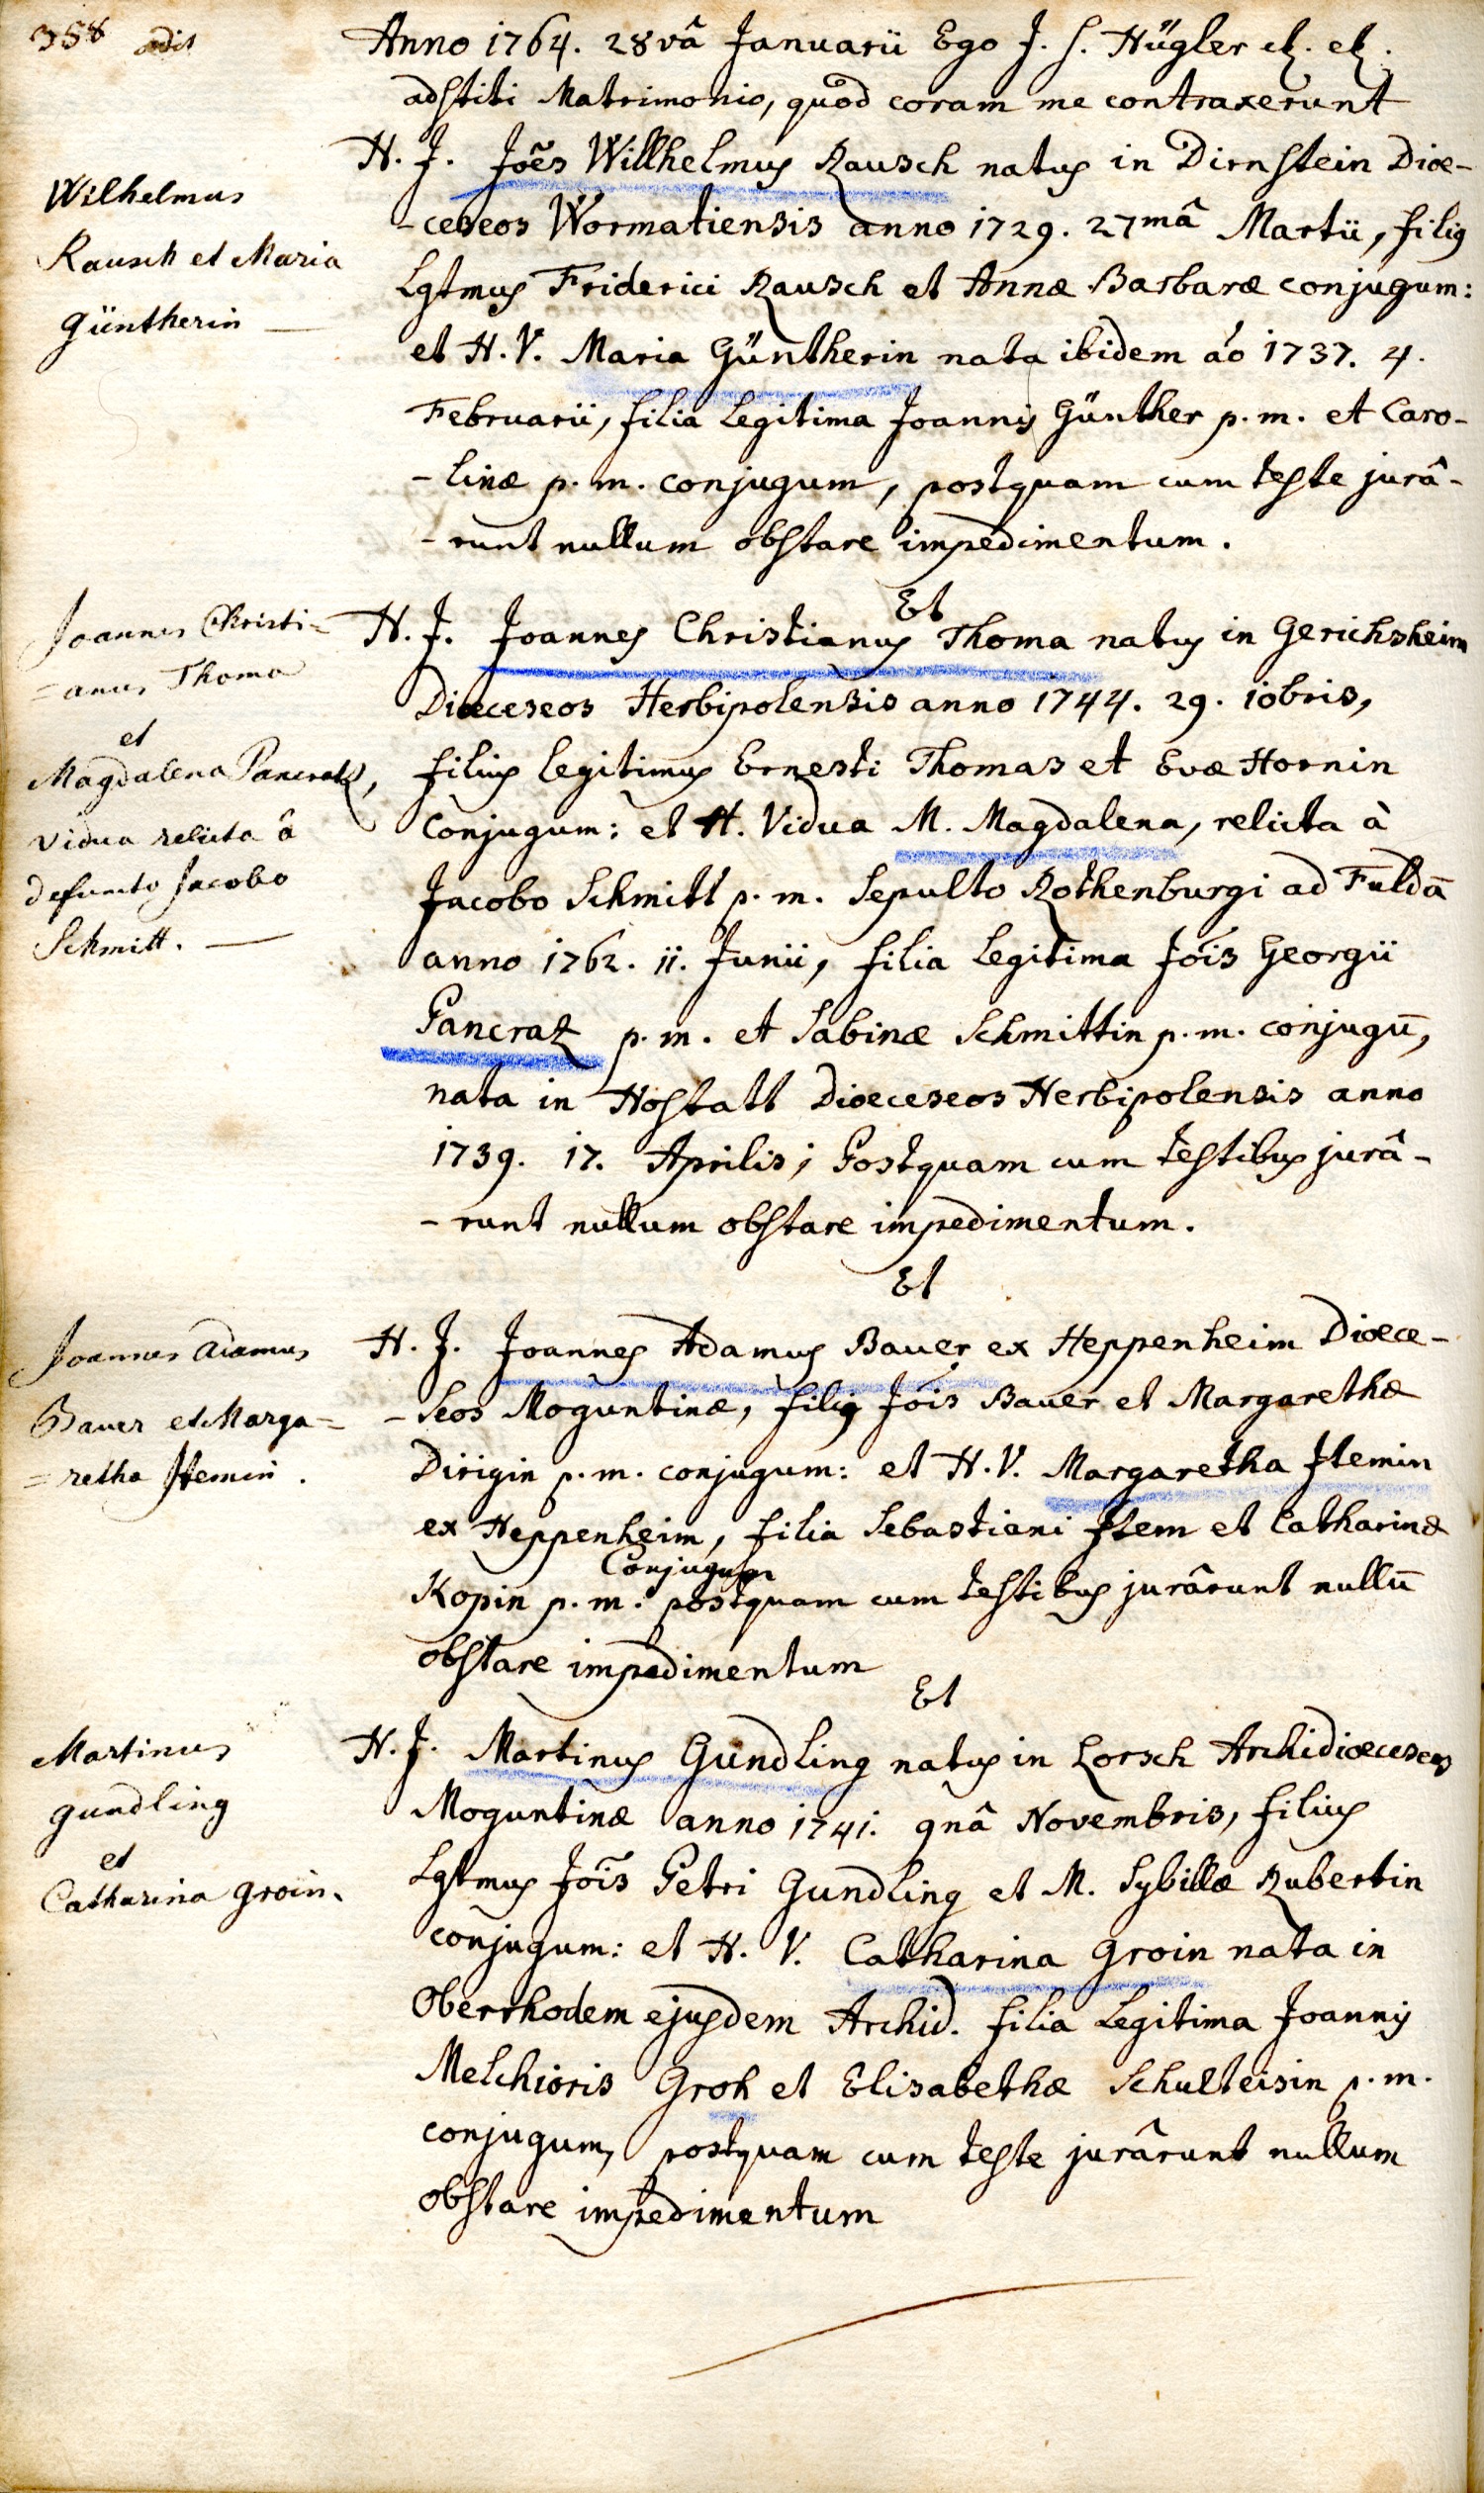 358
Anno 1764. 28vâ Januarii Ego J. S. Hügler etc. etc.
adstiti Matrimonio, quod coram me contraxerunt
Wilhelmus
Rausch et Maria
Güntherin —
H. J. Joẽs Willhelmus Rausch natus in Dirnstein Dioe-
-ceseos Wormatiensis anno 1729. 27mâ Martii, filius
Lgtmus Friderici Rausch et Annæ Barbaræ conjugum:
et H. V. Maria Güntherin nata ibidem aõ 1737. 4.
Februarii, filia Legitima Joannis Günther p. m. et Caro-
-linæ p. m. conjugum, postquam cum teste jurâ-
-runt nullum obstare impedimentum.
Et
Joannes Christi=
=anus Thoma
et
Magdalena Pancratz,
vidua relicta â
defuncto Jacobo
Schmitt. —
H. J. Joannes Christianus Thoma natus in Gerichsheim
Dioeceseos Herbipolensis anno 1744. 29. 10bris,
filius legitimus Ernesti Thomas et Evæ Hornin
conjugum: et H. Vidua M. Magdalena, relicta à
Jacobo Schmitt p. m. Sepulto Rothenburgi ad Fuldā
anno 1762. 11. Junii, filia Legitima Jõis Georgii
Pancratz p. m. et Sabinæ Schmittin p. m. conjugū,
nata in Hostatt Dioeceseos Herbipolensis anno
1739. 17. Aprilis; Postquam cum testibus jurâ-
-runt nullum obstare impedimentum.
Et
Joannes Adamus
Bauer et Marga=
=retha Itemin.
H. J. Joannes Adamus Bauer ex Heppenheim Dioece-
-seos Moguntinæ, filius Jõis Bauer et Margarethæ
Dirigin p. m. conjugum: et H. V. Margaretha Itemin
ex Heppenheim, filia Sebastiani Item et Catharinæ
Conjugum
Kopin p. m. postquam cum testibus jurârunt nullū
obstare impedimentum
Et
Martinus
gundling
et
Catharina groin.
H. J. Martinus Gundling natus in Lorsch Archidioeceseos
Moguntinæ anno 1741. 9nâ Novembris, filius
Lgtmus Jõis Petri Gundling et M. Sybillæ Rubertin
conjugum: et H. V. Catharina Groin nata in
Oberrhodem ejusdem Archid. filia Legitima Joannis
Melchioris Groh et Elisabethæ Schulteisin p. m.
conjugum, postquam cum teste jurârunt nullum
obstare impedimentum